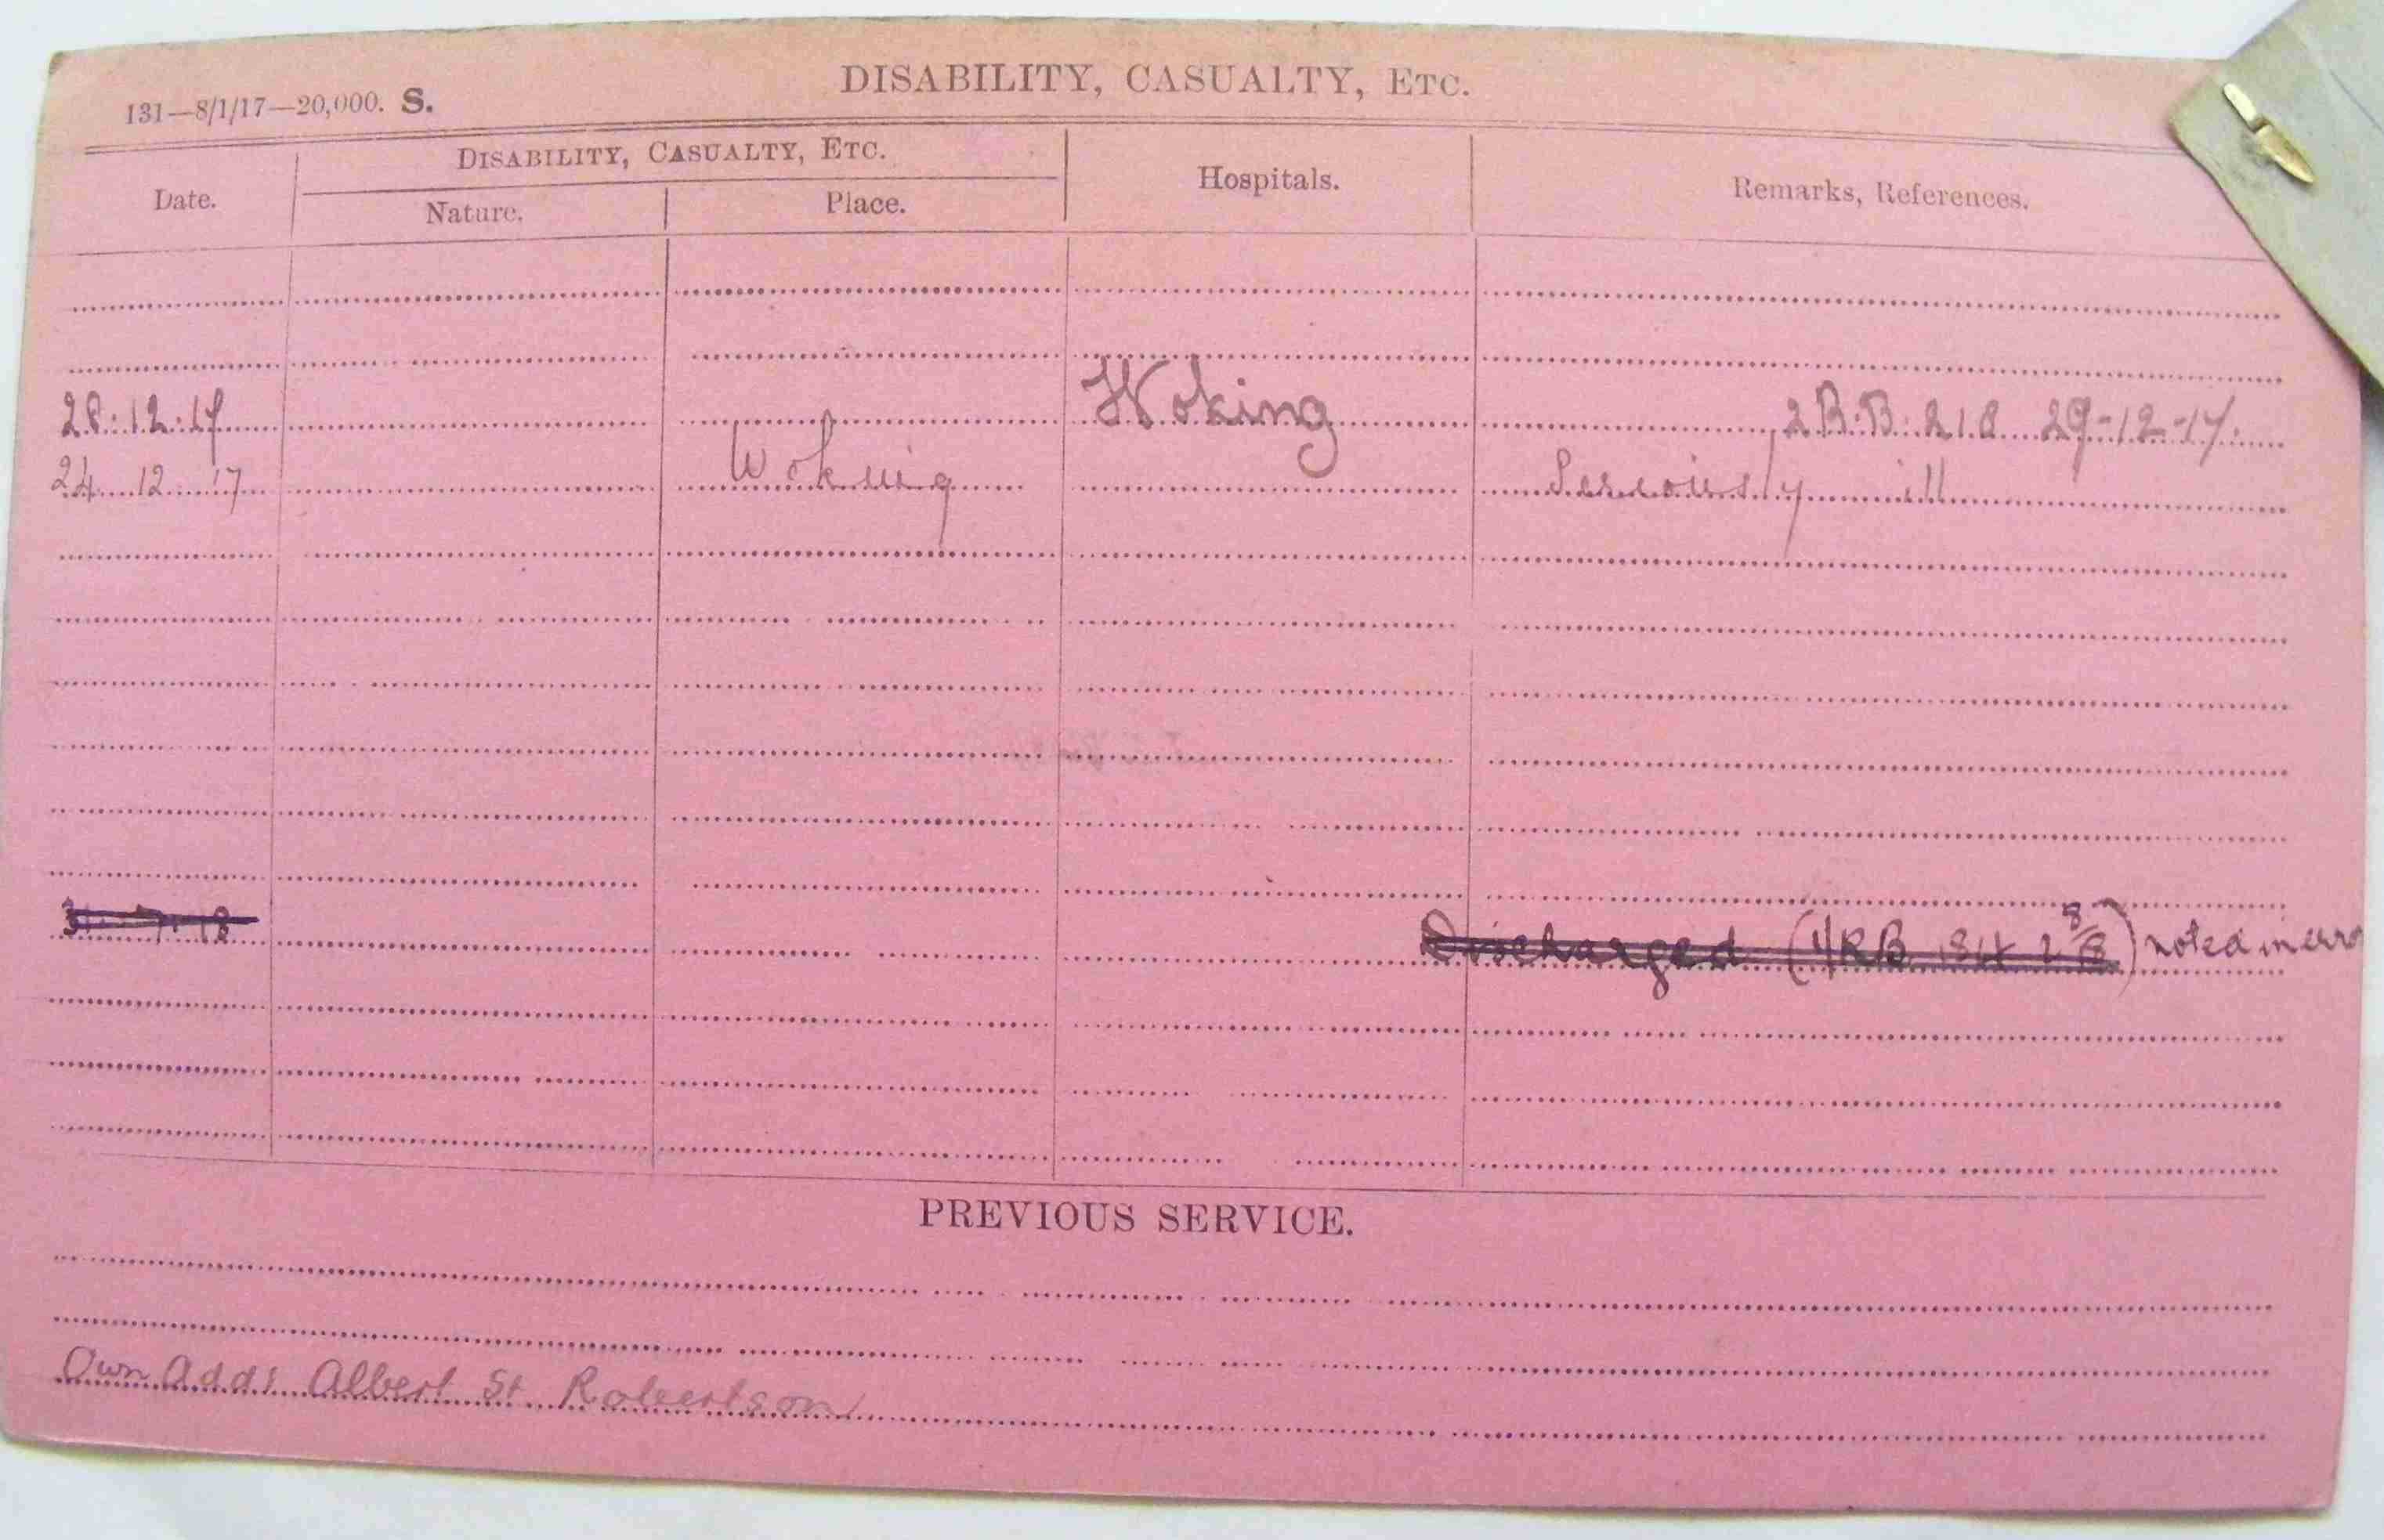 DISABILITY, CASUALTY, ETC.
131—8/1/17—20,000. S.
Date. DISABILITY, CASUALTY, ETC. Hospitals. Remarks, References.
Nature. Place.
28.12.17 Woking 2 R.B. 218 29-12-17.
24 12 17 Woking Seriously ill
31-7-18 Discharged (1/RB 184 2/8/18) noted in erro
PREVIOUS SERVICE.
Own Add: Albert St Robertson